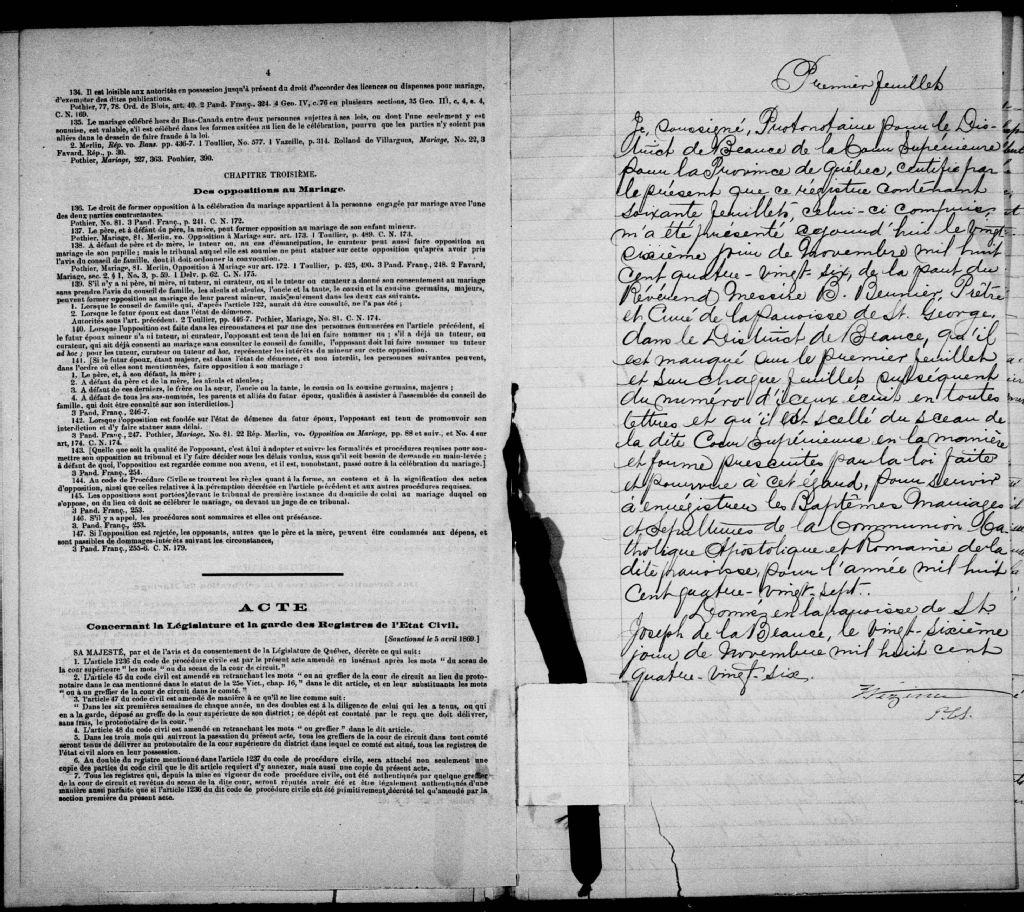 4
134. Il est loisible aux autorités en possession jusqu'à présent du droit d'accorder des licences ou dispenses pour mariage,
d'exempter des dites publications.
Pothier, 77, 78. Ord. de Blois, art. 40. 2 Pand. Franç., 324. 4 Geo. IV, c. 76 en plusieurs sections, 35 Geo. III, c. 4, s. 4,
C. N. 169.
135. Le mariage célébré hors du Bas-Canada entre deux personnes sujettes à ses lois, ou dont l'une seulement y est
soumise, est valable, s'il est célébré dans les formes usitées au lieu de la célébration, pourvu que les parties n'y soient pas
allées dans le dessein de faire fraude à la loi.
2. Merlin, Rép. vo. Bans. pp. 436-7. 1 Toullier, No. 577. 1 Vazeille, p. 314. Rolland de Villargues, Mariage, No. 22, 3
Favard. Rép., p. 30.
Pothier, Mariage, 327, 363. Pouhier, 390.
CHAPITRE TROISIÈME.
Des oppositions au Mariage.
136. Le droit de former opposition à la célébration du mariage appartient à la personne engagée par mariage avec l'une
des deux parties contractantes.
Pothier, No. 81. 3 Pand. Franç., p. 241. C. N. 172.
137. Le père, et à défaut du père, la mère, peut former opposition au mariage de son enfant mineur.
Pothier, Mariage, 81. Merlin, vo. Opposition à Mariage sur. art. 173. 1 Toullier, p. 489. C. N. 173.
138. A défaut de père et de mère, le tuteur ou, au cas d'émancipation, le curateur peut aussi faire opposition au
mariage de son pupille; mais le tribunal auquel elle est soumise ne peut statuer sur cette opposition qu'après avoir pris
l'avis du conseil de famille, dont il doit ordonner la convocation.
Pothier, Mariage, 81. Merlin, Opposition à Mariage sur art. 172. 1 Toullier, p. 425, 490. 3 Pand. Franç., 248. 2 Favard,
Mariage, sec. 2, § 1, No. 3, p. 59. 1 Delv. p. 62. C. N. 175.
139. S'il n'y a ni père, ni mère, ni tuteur, ni curateur, ou si le tuteur ou curateur a donné son consentement au mariage
sans prendre l'avis du conseil de famille, les aïeuls et aïeules, l'oncle et la tante, le cousin et la cousine germains, majeurs,
peuvent former opposition au mariage de leur parent mineur, mais seulement dans les deux cas suivants.
1. Lorsque le conseil de famille qui, d'après l'article 122, aurait dû être consulté, ne l'a pas été;
2. Lorsque le futur époux est dans l'état de démence.
Autorités sous l'art. précédent. 2 Toullier, pp. 446-7. Pothier, Mariage, No. 81. C. N. 174.
140. Lorsque l'opposition est faite dans les circonstances et par une des personnes énumérées en l'article précédent, si
le futur époux mineur n'a ni tuteur, ni curateur, l'opposant est tenu de lui en faire nommer un; s'il a déjà un tuteur, ou
curateur, qui ait déjà consenti au mariage sans consulter le conseil de famille, l'opposant doit lui faire nommer un tuteur
ad hoc; pour les tuteur, curateur ou tuteur ad hoc, représenter les intérêts du mineur sur cette opposition.
141. [Si le futur époux, étant majeur, est dans l'état de démence, et non interdit, les personnes suivantes peuvent,
dans l'ordre où elles sont mentionnées, faire opposition à son mariage:
1. Le père, et, à son défaut, la mère;
2. A défaut du père et de la mère, les aïeuls et aïeules;
3. A défaut de ces derniers, le frère ou la sœur, l'oncle ou la tante, le cousin ou la cousine germains, majeurs;
4. A défaut de tous les sus-nommés, les parents et alliés du futur époux, qualifiés à assister à l'assemblée du conseil de
famille, qui doit être consulté sur son interdiction.]
3 Pand. Franç., 246-7.
142. Lorsque opposition est fondée sur l'état de démence du futur époux, l'opposant est tenu de promouvoir son
interdiction et d'y faire statuer sans délai.
3 Pand. Franç., 247. Pothier, Mariage, No. 81. 22 Rép. Merlin, vo. Opposition au Mariage, pp. 88 et suiv., et No. 4 sur
art, 174. C. N. 174.
143. [Quelle que soit la qualité de l'opposant, c'est à lui à adopter et suivre les formalités et procédures requises pour sou-
mettre son opposition au tribunal et l'y faire décider sous les délais voulus, sans qu'il soit besoin de demande en main-levée;
à défaut de quoi, l'opposition est regardée comme non avenu, et il est, nonobstant, passé outre à la célébration du mariage.]
3 Pand. Franç., 254.
144. Au code de Procédure Civile se trouvent les règles quant à la forme, au contenu et à la signification des actes
d'opposition, ainsi que celles relatives à la péremption décrétée en l'article précédent et aux autres procédures requises.
145. Les oppositions sont portées devant le tribunal de première instance du domicile de celui au mariage duquel on
s'oppose, ou du lieu où doit se célébrer le mariage, ou devant un juge de ce tribunal.
3 Pand. Franç., 253.
146. S'il y a appel, les procédures sont sommaires et elles ont préséance.
3. Pand. Franç., 253.
147. Si l'opposition est rejetée, les opposants, autres que le père et la mère, peuvent être condamnés aux dépens, et
sont passibles de dommages-intérêts suivant les circonstances,
3 Pand. Franç., 255-6. C. N. 179.
ACTE
Concernant la Législature et la garde des Registres de l'Etat Civil.
[Sanctionné le 5 avril 1869.]
SA MAJESTÉ, par et de l'avis et du consentement de la Législature de Québec, décrète ce qui suit:
1. L'article 1236 du code de procédure civile est par le présent acte amendé en insérant après les mots " du sceau de
la cour supérieure " les mots " ou du sceau de la cour de circuit."
2. L'article 45 du code civil est amendé en retranchant les mots " ou au greffier de la cour de circuit au lieu du proto-
notaire dans le cas mentionné dans le statut de la 25e Vict., chap. 16, " dans le dit article, et en leur substituants les mots
" ou à un greffier de la cour de circuit dans le comté."
3. l'article 47 du code civil est amendé de manière à ce qu'il se lise comme suit:
" Dans les six premières semaines de chaque année, un des doubles est à la diligence de celui qui les a tenus, ou qui
en a la garde, déposé au greffe de la cour supérieure de son district; ce dépôt est constaté par le reçu que doit délivrer,
sans frais, le protonotaire de la cour."
4. L'article 48 du code civil est amendé en retranchant les mots " ou greffier " dans le dit article.
5. Dans les trois mois qui suivront la passation du présent acte, tous les greffiers de la cour de circuit dans tout comté
seront tenus de délivrer au protonotaire de la cour supérieure du district dans lequel ce comté est situé, tous les registres de
l'état civil alors en leur possession.
6. Au double du registre mentionné dans l'article 1237 du code de procédure civile, sera attaché non seulement une
copie des parties du code civil que le dit article requiert d'y annexer, mais aussi une copie du présent acte.
7. Tous les registres qui, depuis la mise en vigueur du code procédure civile, ont été authentiqués par quelque greffier
de la cour de circuit et revêtus du sceau de la dite cour, seront réputés avoir été et être légalement authentiqués d'une
manière aussi parfaite que si l'article 1236 du dit code de procédure civile eût été primitivement décrété tel qu'amendé par la
section première du présent acte.
Premier feuillet
Je, soussigné, Protonotaire pour le Dis-
trict de Beauce de la Cour Supérieure
pour la Province de Québec, certifie par
le présent que ce régistre contenant
soixante feuillets, celui-ci compris,
m'a été présenté aujourd'hui le vingt-
sixième jour de Novembre mil huit
cent quatre-vingt-six, de la part du
Révérend Messire B. Bernier, Prêtre
et Curé de la paroisse de St. George,
dans le District de Beauce, qu'il
est marqué sur le premier feuillet
et sur chaque feuillet subséquent
du numéro d'iceux écrit en toutes
lettres et qu'il est scellé du sceau de
la dite Cour Supérieure en la manière
et forme prescrites par la loi faite
et pourvue à cet égard, pour servir
à enrégistrer les Baptêmes Mariages
et Sépultures de la Communion Ca-
tholique Apostolique et Romaine de la
dite paroisse, pour l'année mil huit
cent quatre-vingt-sept.
Donné en la paroisse de St.
Joseph de la Beauce, le vingt-sixième
jour de Novembre mil huit cent
quatre-vingt-six.
P.C.S.